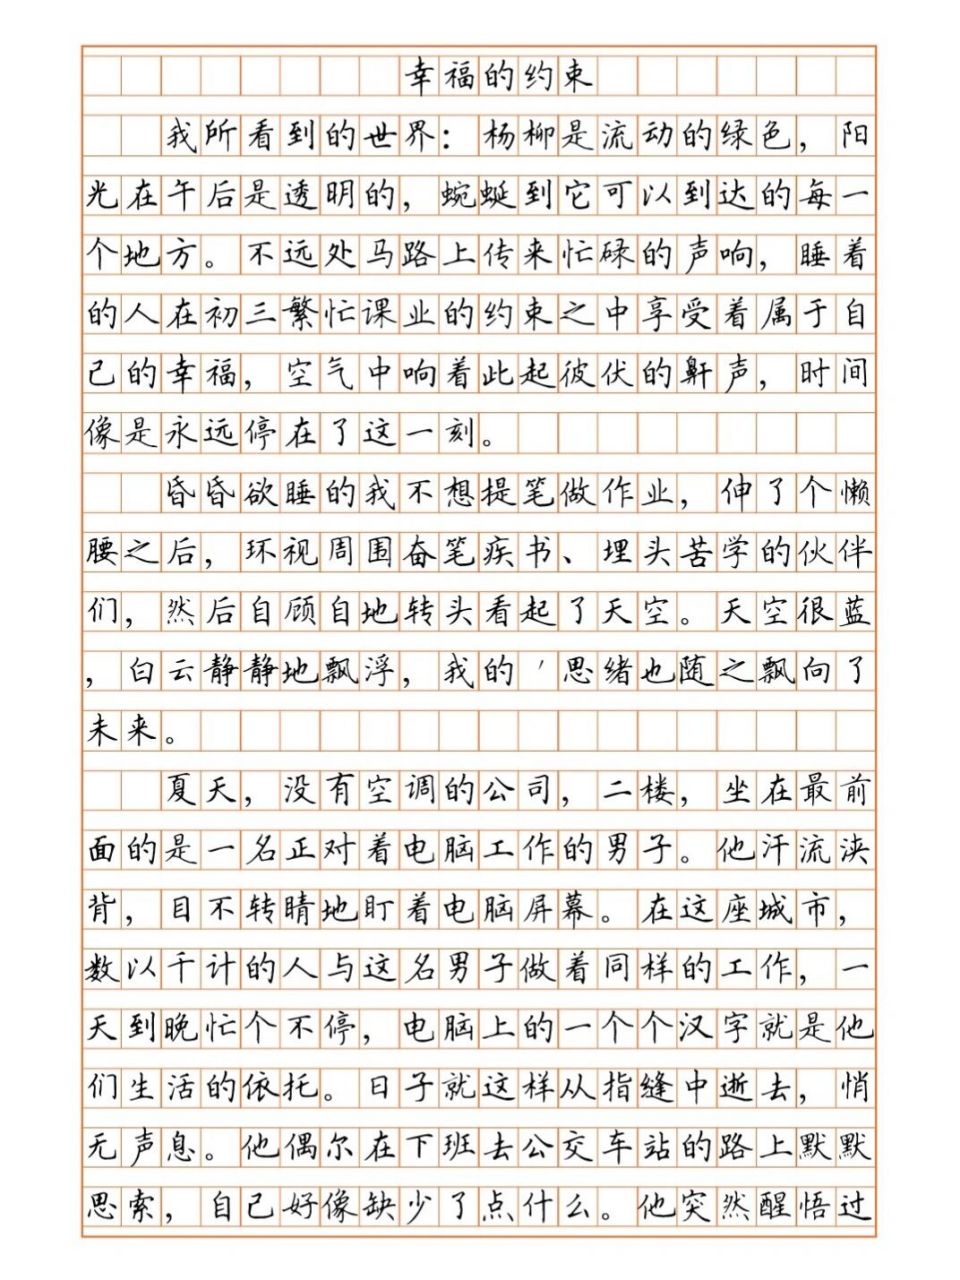 幸福的约束
我所看到的世界：杨柳是流动的绿色，阳
光在午后是透明的，蜿蜒到它可以到达的每一
个地方。不远处马路上传来忙碌的声响，睡着
的人在初三繁忙课业的约束之中享受着属于自
己的幸福，空气中响着此起彼伏的鼾声，时间
像是永远停在了这一刻。
昏昏欲睡的我不想提笔做作业，伸了个懒
腰之后，环视周围奋笔疾书、埋头苦学的伙伴
们，然后自顾自地转头看起了天空。天空很蓝
，白云静静地飘浮，我的＇思绪也随之飘向了
未来。
夏天，没有空调的公司，二楼，坐在最前
面的是一名正对着电脑工作的男子。他汗流浃
背，目不转睛地盯着电脑屏幕。在这座城市，
数以千计的人与这名男子做着同样的工作，一
天到晚忙个不停，电脑上的一个个汉字就是他
们生活的依托。日子就这样从指缝中逝去，悄
无声息。他偶尔在下班去公交车站的路上默默
思索，自己好像缺少了点什么。他突然醒悟过